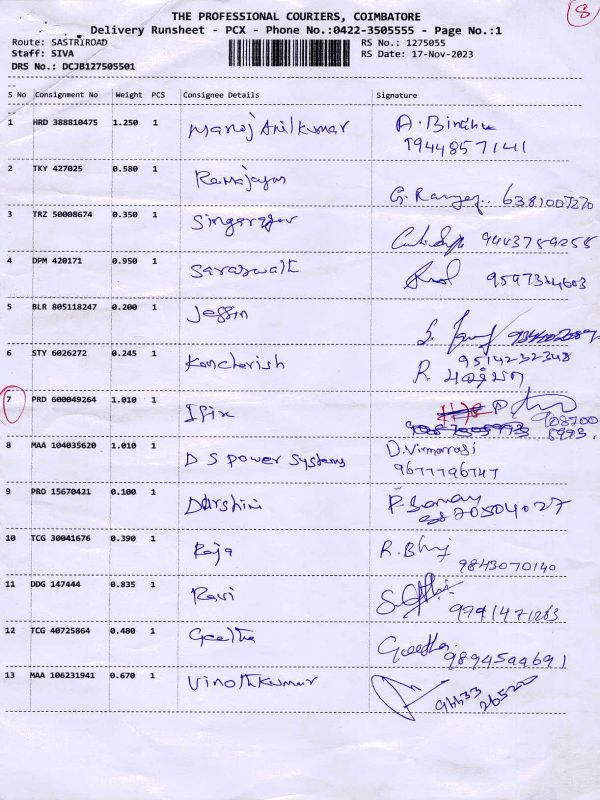 8
THE PROFESSIONAL COURIERS, COIMBATORE
Delivery Runsheet - PCX - Phone No.:0422-3505555 - Page No.:1
Route: SASTRIROAD
RS No.: 1275055
Staff: SIVA
RS Date: 17-Nov-2023
DRS No.: DCJB127505501
S No Consignment No Weight PCS Consignee Details Signature
1 HRD 388810475 1.250 1 Manoj Anilkumar A. Bindhu
19448571141
2 TKY 427025 0.580 1 Ramajayam
6381007270
3 TRZ 50008674 0.350 1 Singarajan
9443789258
4 DPM 420171 0.950 1 Saraswati
5 BLR 805118247 0.200 1 Jeffin
6 STY 6026272 0.245 1 Kancherish 9514232348
R.
7 PRD 600049264 1.010 1 Ifix
908700
5973
8 MAA 104035620 1.010 1 D S Power Systems
9677796747
9 PRO 15670421 0.100 1 Darshini
10 TCG 30041676 0.390 1 Raja R. Bhuj
9843070140
11 DDG 147444 0.835 1 Ravi
12 TCG 40725864 0.480 1 Geetha Geetha
9894544691
13 MAA 106231941 0.670 1 Vinothkumar
96633
26522